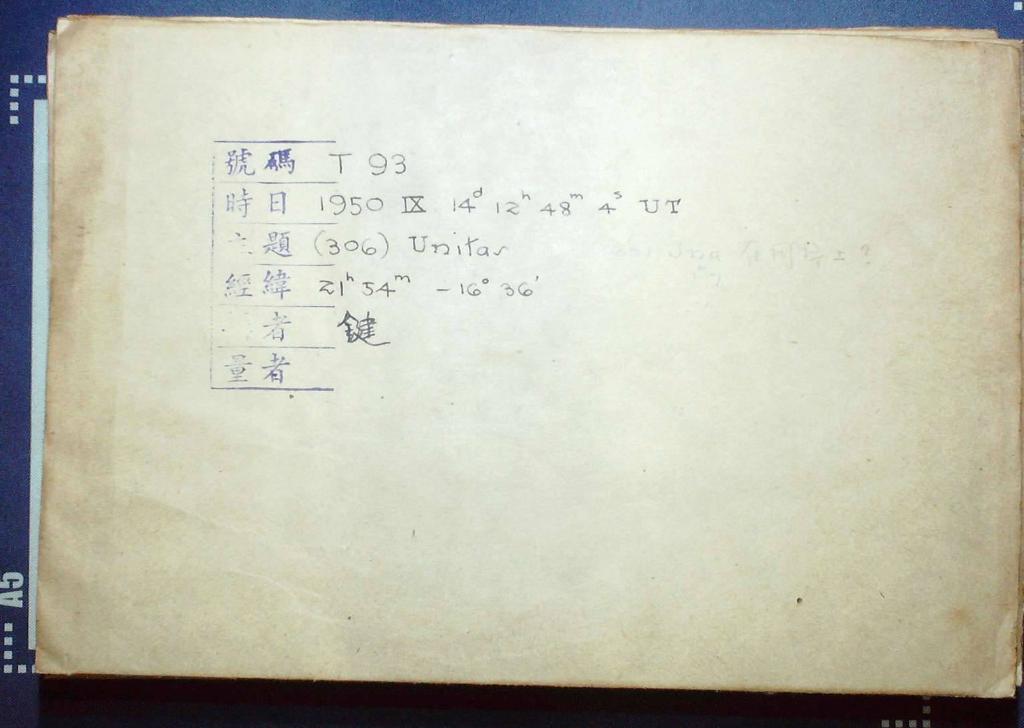 號碼 T 93
時日 1950 IX 14d 12h 48m 4s UT
題 (306) Unitas
經緯 21h 54m -16° 36'
者 鍵
量者
A5